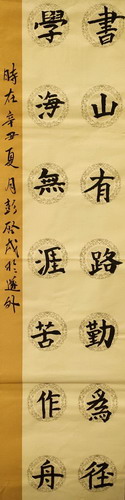 書山有路勤為徑
學海無涯苦作舟
時在辛丑夏月彭啓成於遵外